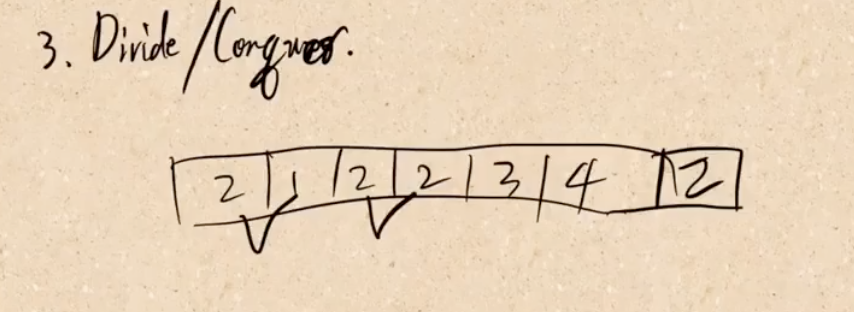 3. Divide/Conquer.
2 1 2 2 3 4 2